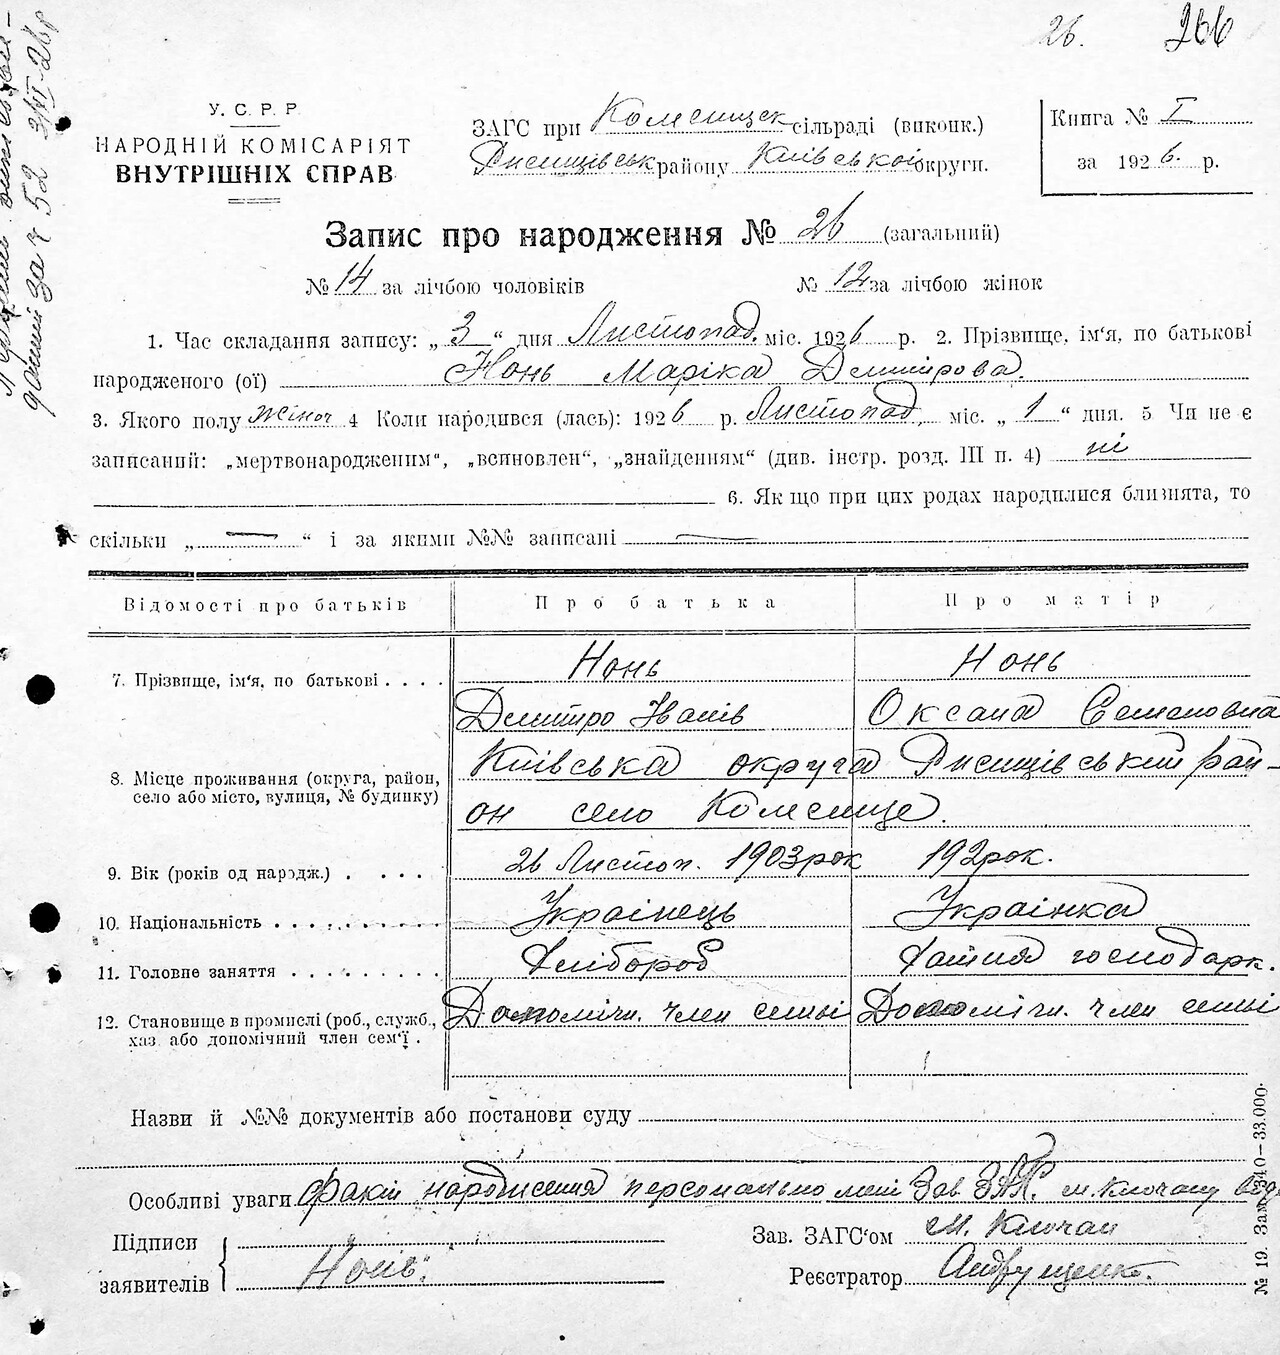 26. 266
У. С. Р. Р.
НАРОДНІЙ КОМІСАРІЯТ
ВНУТРІШНІХ СПРАВ
ЗАГС при сільраді (виконк.)
району Київської округи.
Книга № I
за 1926 р.
Запис про народження № 26 (загальний)
№ 14 за лічбою чоловіків № 12 за лічбою жінок
1. Час складання запису: „ 3 “ дня Листопад. міс. 1926 р. 2. Прізвище, ім‘я, по батькові
народженого (ої) Нонь Маріка Дмитрова.
3. Якого полу жіноч 4 Коли народився (лась): 1926 р. Листопад, міс. „ 1 “ дня. 5 Чи не є
записаний: „мертвонародженим“, „всиновлен“, „знайденням“ (див. інстр. розд. III п. 4) ні
6. Як що при цих родах народилися близнята, то
скільки „ — “ і за якими №№ записані —
Відомості про батьків Про батька Про матір
7. Прізвище, ім‘я, по батькові . . . . Нонь Нонь
Дмитро Іванів Оксана Семеновна
8. Місце проживання (округа, район, село або місто, вулиця, № будинку) Київська округа район
село
9. Вік (років од нарздж.) . . . . 26 Листоп. 1903 рок 192 рок.
10. Національність . . . . . . . . . . Українець Українка
11. Головне заняття . . . . . . . . Хлібороб господарк.
12. Становище в промислі (роб., службо., хаз або допомічний член сем‘ї . Допомічн. член семьі Допомічн. член семьі
Назви й №№ документів або постанови суду
Особливі уваги Факт народження персонально мені Зав ЗАГС. м. Ключану
Підписи
заявителів
Нонь
Зав. ЗАГС‘ом М. Ключан
Реєстратор Андрущенко.
№ 19. Зам. 33.000.